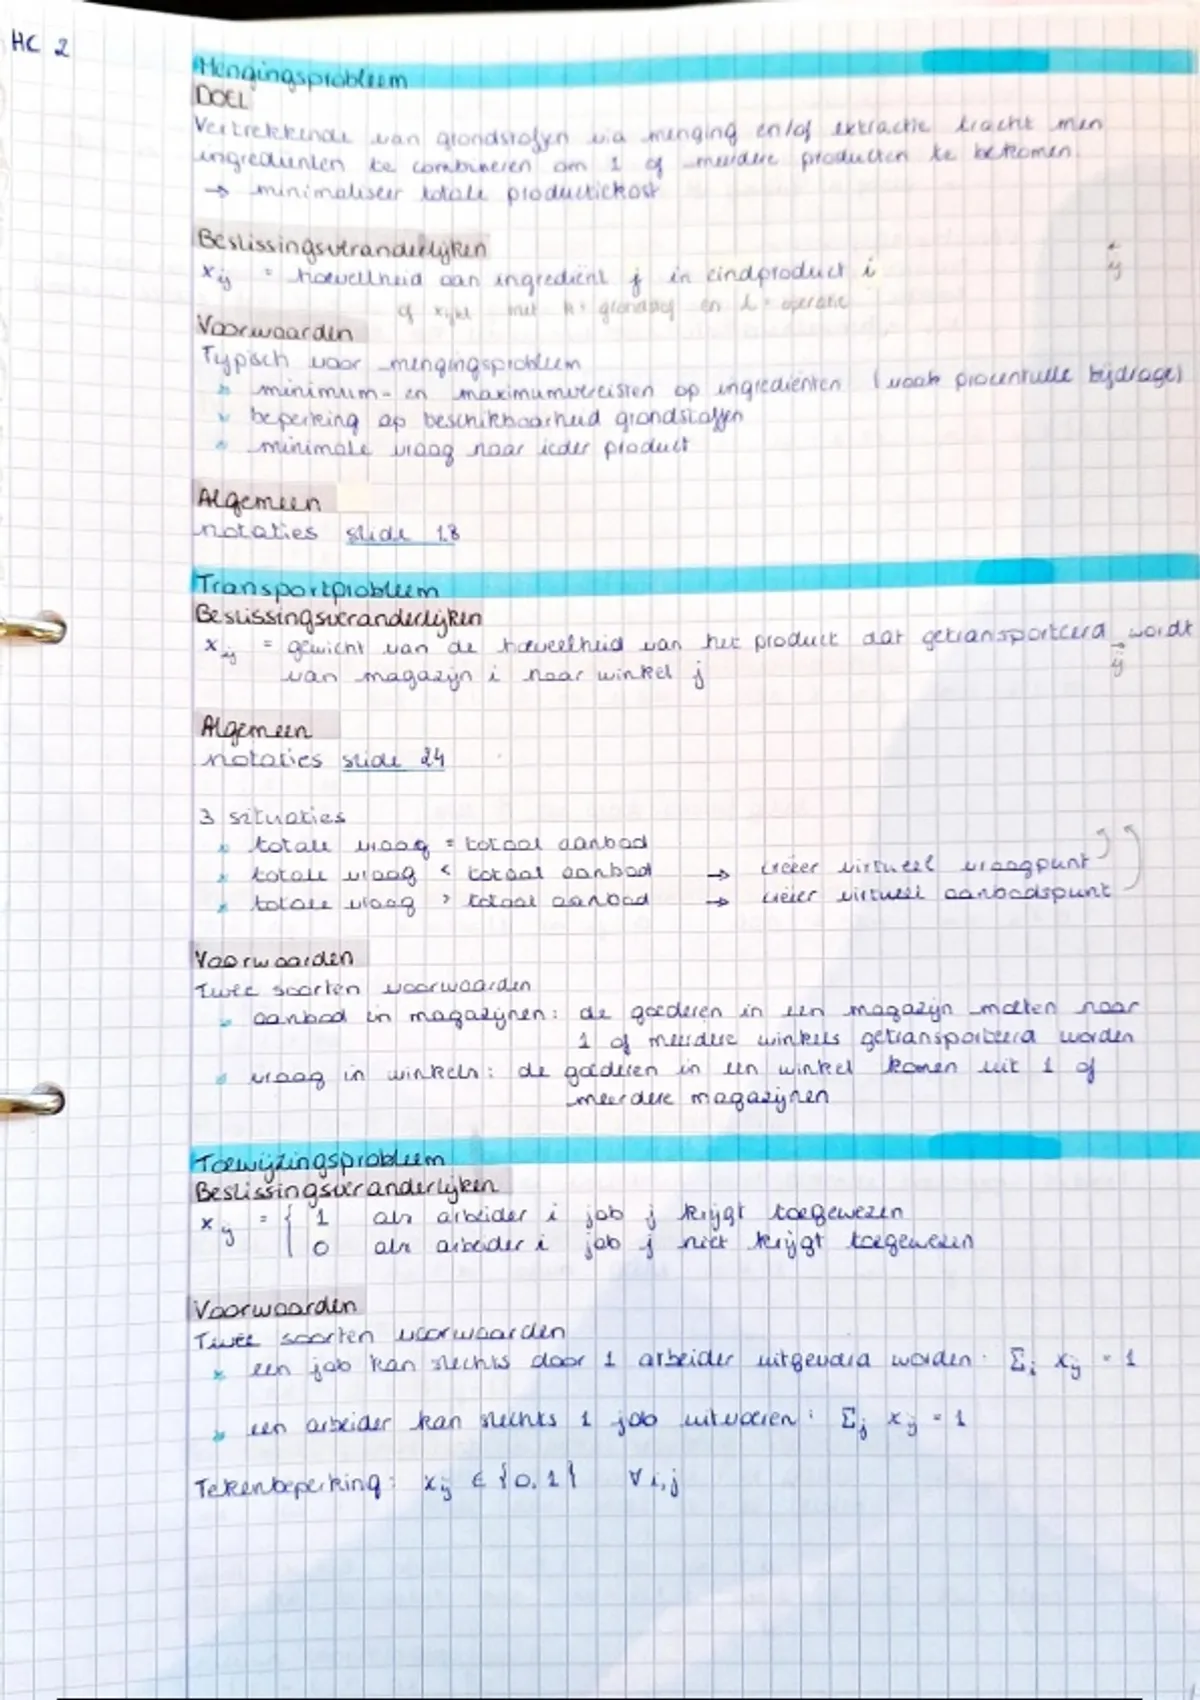 HC 2
Mengingsprobleem
DOEL
Vertrekkende van grondstoffen via menging en/of extractie tracht men
ingrediënten te combineren om 1 of meerdere producten te bekomen.
→ minimaliseer totale productiekost
Beslissingsveranderlijken
x_ij = hoeveelheid van ingrediënt j in eindproduct i
ij
of x_ijkl met k = grondstof en l = operatie
Voorwaarden
Typisch voor mengingsprobleem
» minimum- en maximumvereisten op ingrediënten (vaak procentuele bijdrage)
» beperking op beschikbaarheid grondstoffen
» minimale vraag naar ieder product
Algemeen
notaties slide 18
Transportprobleem
Beslissingsveranderlijken
x_ij = gewicht van de hoeveelheid van het product dat getransporteerd wordt
van magazijn i naar winkel j
→ ij
Algemeen
notaties slide 24
3 situaties
» totale vraag = totaal aanbod
» totale vraag < totaal aanbod → creëer virtueel vraagpunt
» totale vraag > totaal aanbod → creëer virtueel aanbodspunt
Voorwaarden
Twee soorten voorwaarden
» aanbod in magazijnen: de goederen in een magazijn moeten naar
1 of meerdere winkels getransporteerd worden
» vraag in winkeln: de goederen in een winkel komen uit 1 of
meerdere magazijnen
Toewijzingsprobleem
Beslissingsveranderlijken
x_ij = { 1 als arbeider i job j krijgt toegewezen
0 als arbeider i job j niet krijgt toegewezen
Voorwaarden
Twee soorten voorwaarden
» een job kan slechts door 1 arbeider uitgevoerd worden: Σ_i x_ij = 1
» een arbeider kan slechts 1 job uitvoeren: Σ_j x_ij = 1
Tekenbeperking: x_ij ∈ {0,1} ∀ i,j